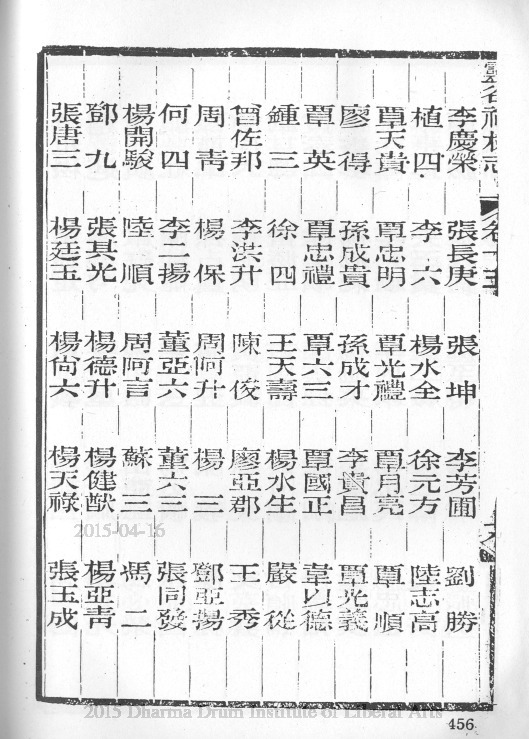 靈谷禪林志
卷十五
李慶榮 張長庚 張坤 李芳圃 劉勝
植四 李六 楊水全 徐元方 陸志高
覃天貴 覃忠明 覃光禮 覃月亮 覃順
廖得 孫成貴 孫成才 李貴昌 覃光義
覃英 覃忠禮 覃六三 覃國正 韋以德
鍾三 徐四 王天壽 楊水生 嚴從
曾佐邦 李洪升 陳俊 廖亞郡 王秀
周青 楊保 周阿升 楊三 鄧亞揚
何四 李二揚 董亞六 董六三 張同發
楊開駿 陸順 周阿言 蘇三 馮二
鄧九 張其光 楊德升 楊健猷 楊亞靑
張唐三 楊廷玉 楊尙六 楊天祿 張玉成
2015-04-16
2015 Dharma Drum Institute of Liberal Arts
456